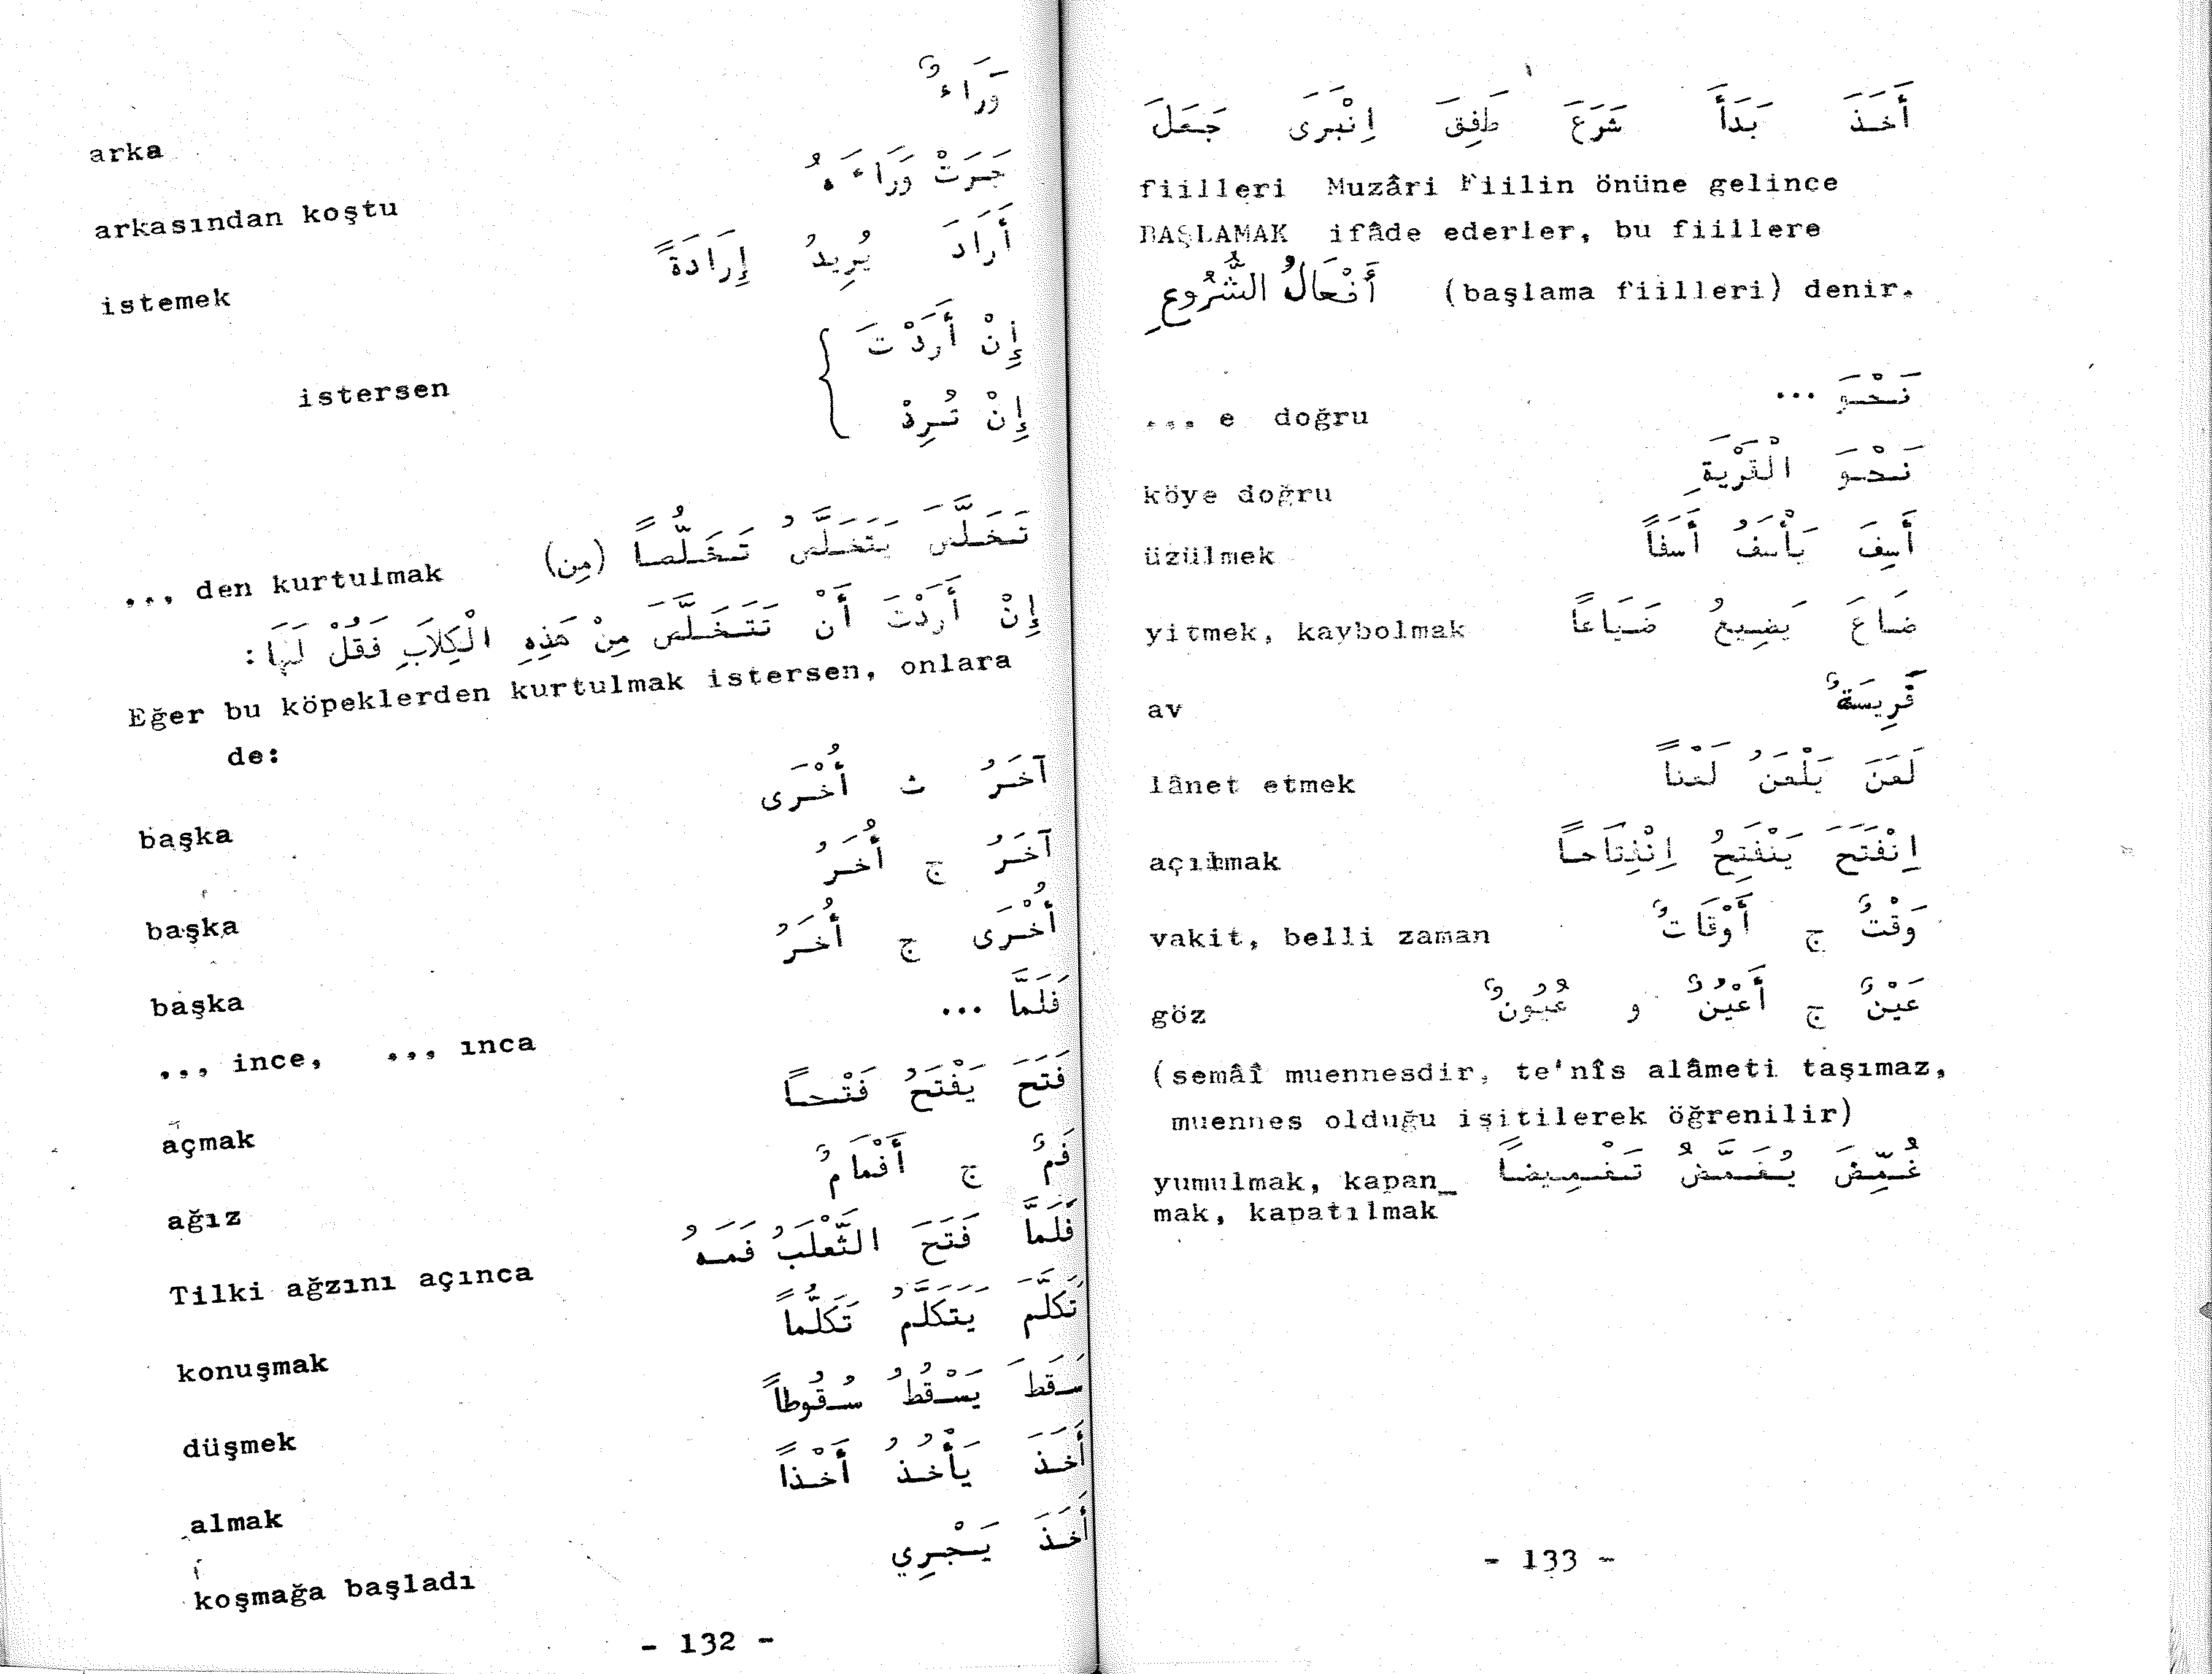 وَرَاءٌ
arka
جَرَتْ وَرَاءَهُ
arkasından koştu
أَرَادَ يُرِيدُ إِرَادَةً
istemek
إِنْ أَرَدْتَ
istersen
إِنْ تُرِدْ
تَخَلَّصَ يَتَخَلَّصُ تَخَلُّصاً (مِن)
... den kurtulmak
إِنْ أَرَدْتَ أَنْ تَتَخَلَّصَ مِنْ هَذِهِ الْكِلَابِ فَقُلْ لَهَا :
Eğer bu köpeklerden kurtulmak istersen, onlara
de:
آخَرُ ث أُخْرَى
başka
آخَرُ ج أُخَرُ
başka
أُخْرَى ج أُخَرُ
başka
فَلَمَّا ...
... ince, ... ınca
فَتَحَ يَفْتَحُ فَتْحـاً
açmak
فَمٌ ج أَفْمَامٌ
ağız
فَلَمَّا فَتَحَ الثَّعْلَبُ فَمَـهُ
Tilki ağzını açınca
تَكَلَّمَ يَتَكَلَّمُ تَكَلُّماً
konuşmak
سَقَطَ يَسْقُطُ سُقُوطاً
düşmek
أَخَذَ يَأْخُذُ أَخْذاً
almak
أَخَذَ يَجْرِي
koşmağa başladı
- 132 -
أَخَذَ بَدَأَ شَرَعَ طَفِقَ اِنْبَرَى جَعَلَ
fiilleri Muzâri Fiilin önüne gelince
BAŞLAMAK ifâde ederler, bu fiillere
أَفْعَالُ الشُّرُوعِ (başlama fiilleri) denir.
نَحْوَ ...
... e doğru
نَحْوَ الْقَرْيَةِ
köye doğru
أَسِفَ يَأْسَفُ أَسَفاً
üzülmek
ضَاعَ يَضِيعُ ضَيَاعاً
yitmek, kaybolmak
فَرِيسَةٌ
av
لَعَنَ يَلْعَنُ لَعْناً
lânet etmek
اِنْفَتَحَ يَنْفَتِحُ اِنْفِتَاحـاً
açılmak
وَقْتٌ ج أَوْقَاتٌ
vakit, belli zaman
عَيْنٌ ج أَعْيُنٌ و عُيُونٌ
göz
(semâî muennesdir, te'nîs alâmeti taşımaz,
muennes olduğu işitilerek öğrenilir)
غُمِّضَ يُغَمَّضُ تَغْمِيضاً
yumulmak, kapan_
mak, kapatılmak
- 133 -